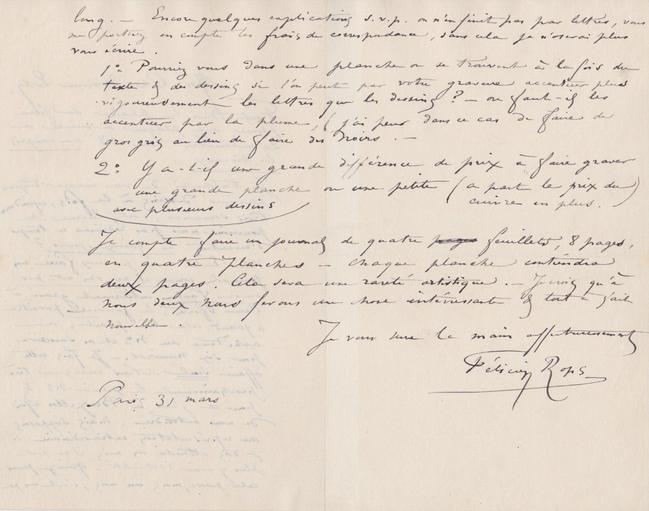 long. — Encore quelques explications s.v.p. on n'en finit pas par lettres, vous
me porterez en compte les frais de correspondance, sans cela je n'oserai plus
vous écrire.
1º Pourriez vous dans une planche ou se trouvent à la fois du
texte & des dessins si l'on peut par votre gravure accentuer plus
vigoureusement les lettres que les dessins? — ou faut-il les
accentuer par la plume, (j'ai peur dans ce cas de faire de
gros gris au lieu de faire des noirs. —
2º Y a-t-il une grande différence de prix à faire graver
une grande planche ou une petite (a part le prix du)
avec plusieurs dessins cuivre en plus.
Je compte faire un journal de quatre pages feuillets, 8 pages,
en quatre planches — chaque planche contiendra
deux pages. Cela sera une rareté artistique. — Je crois qu'à
nous deux nous ferons une chose intéressante & tout à fait
nouvelle.
Je vous serre la main affectueusement
Félicien Rops
Paris 31 mars